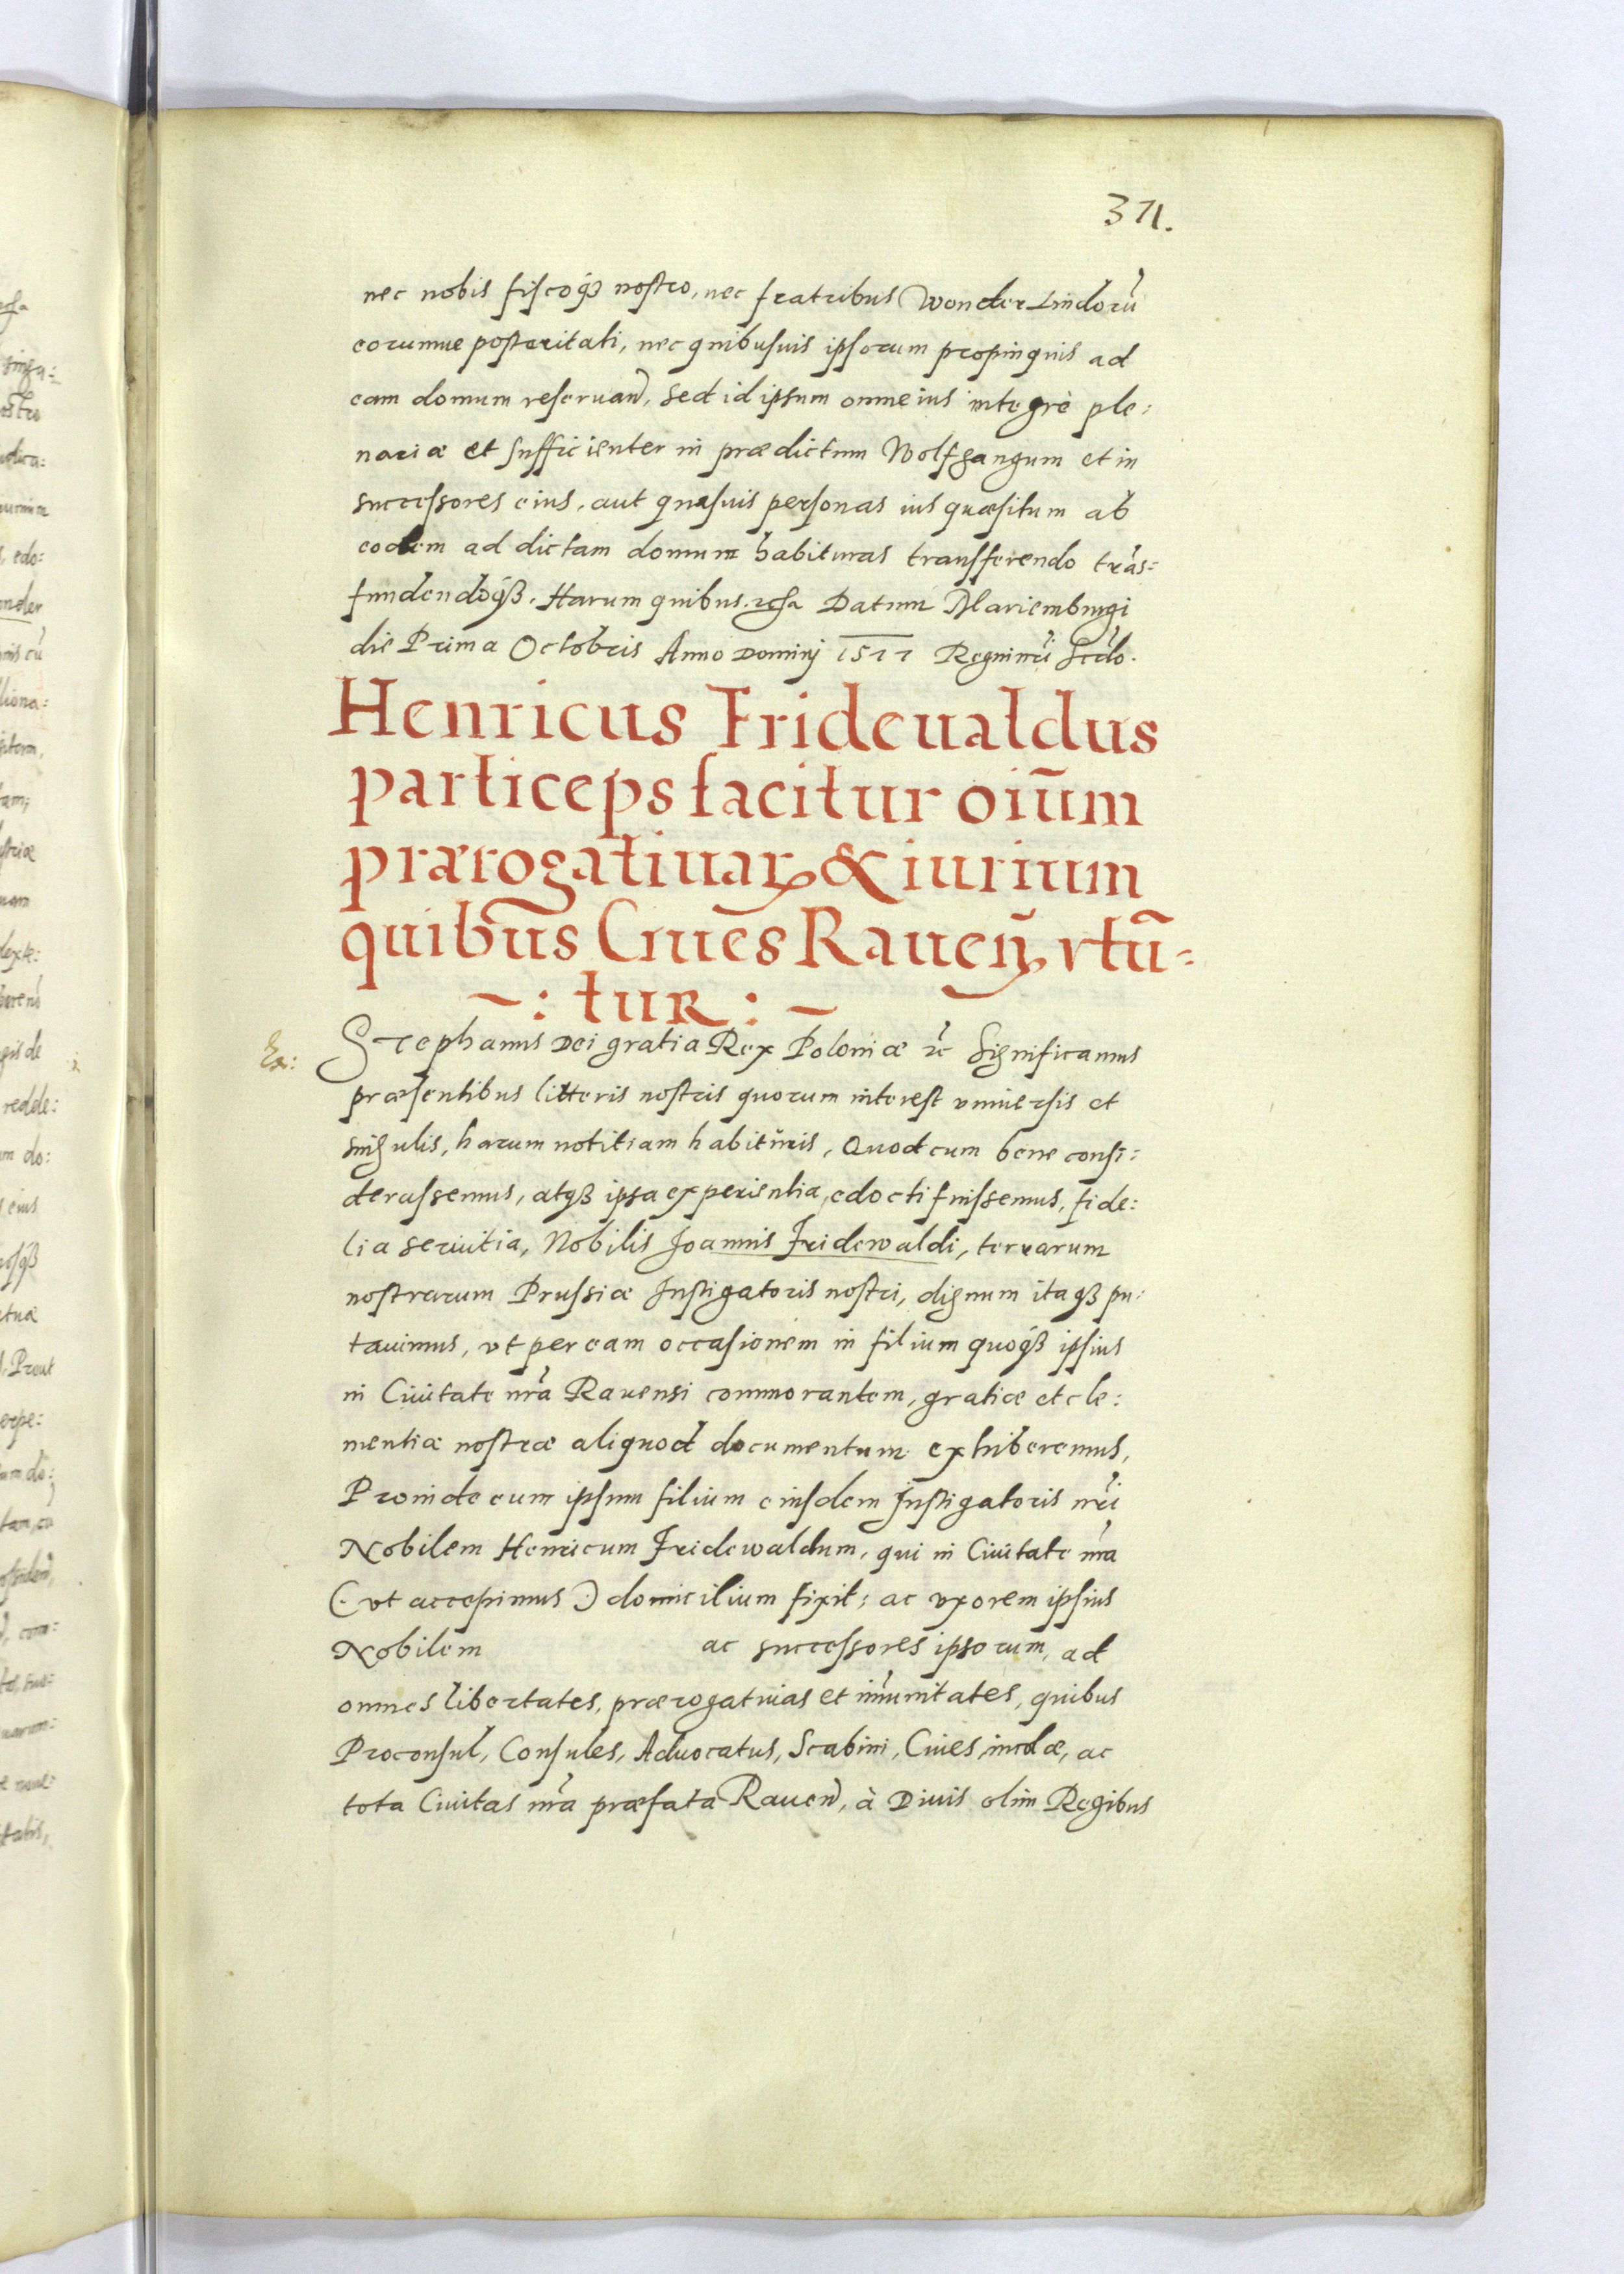 371.
nec nobis fiscoqȝ nostro, nec fratribus Wonder Lindorū
eorumue posteritati, nec quibusuis ipsorum propinquis ad
eam domum reseruan̄, sed id ipsum omne ius integrè ple:
nariæ et sufficienter in prædictum Wolfgangum et in
successores eius, aut quasuis personas ius quæsitum ab
eodem ad dictam domum habituras transferendo trās:
fundendoqȝ. Harum quibus. rẽſa Datum Mariemburgi
die Prima Octobris Anno Dominj 1577 Regni nr̄i Scdo.
Henricus Frideualdus
particeps facitur oiūm
prærogatiuaꝝ & iurium
quibus Ciues Raueñ vtū-
~: tur :~
Ex:
Stephanus Dei gratia Rex Poloniæ ꝛc̄ Significamus
præsentibus litteris nostris quorum interest vniuersis et
singulis, harum notitiam habituris, Quod cum bene consi:
derassemus, atqȝ ipsa experientia edocti fuissemus, fide:
lia seruitia, Nobilis Joannis Fridewaldi, terrarum
nostrarum Prussiæ Instigatoris nostri, dignum itaqȝ pu:
tauimus, vt per eam occasionem in filium quoqȝ ipsius
in Ciuitate nr̄a Rauensi commorantem, gratiæ et cle:
mentiæ nostræ aliquod documentum exhiberemus,
Proinde eum ipsum filium eiusdem Instigatoris nr̄i
Nobilem Henricum Fridewaldum, qui in Ciuitate nr̄a
(: vt accepimus :) domicilium fixit; ac vxorem ipsius
Nobilem ac successores ipsorum, ad
omnes libertates, prærogatiuas et im̄unitates, quibus
Proconsul, Consules, Aduocatus, Scabini, Ciues, incolæ, ac
tota Ciuitas nr̄a præfata Rauen̄, à Diuis olim Regibus